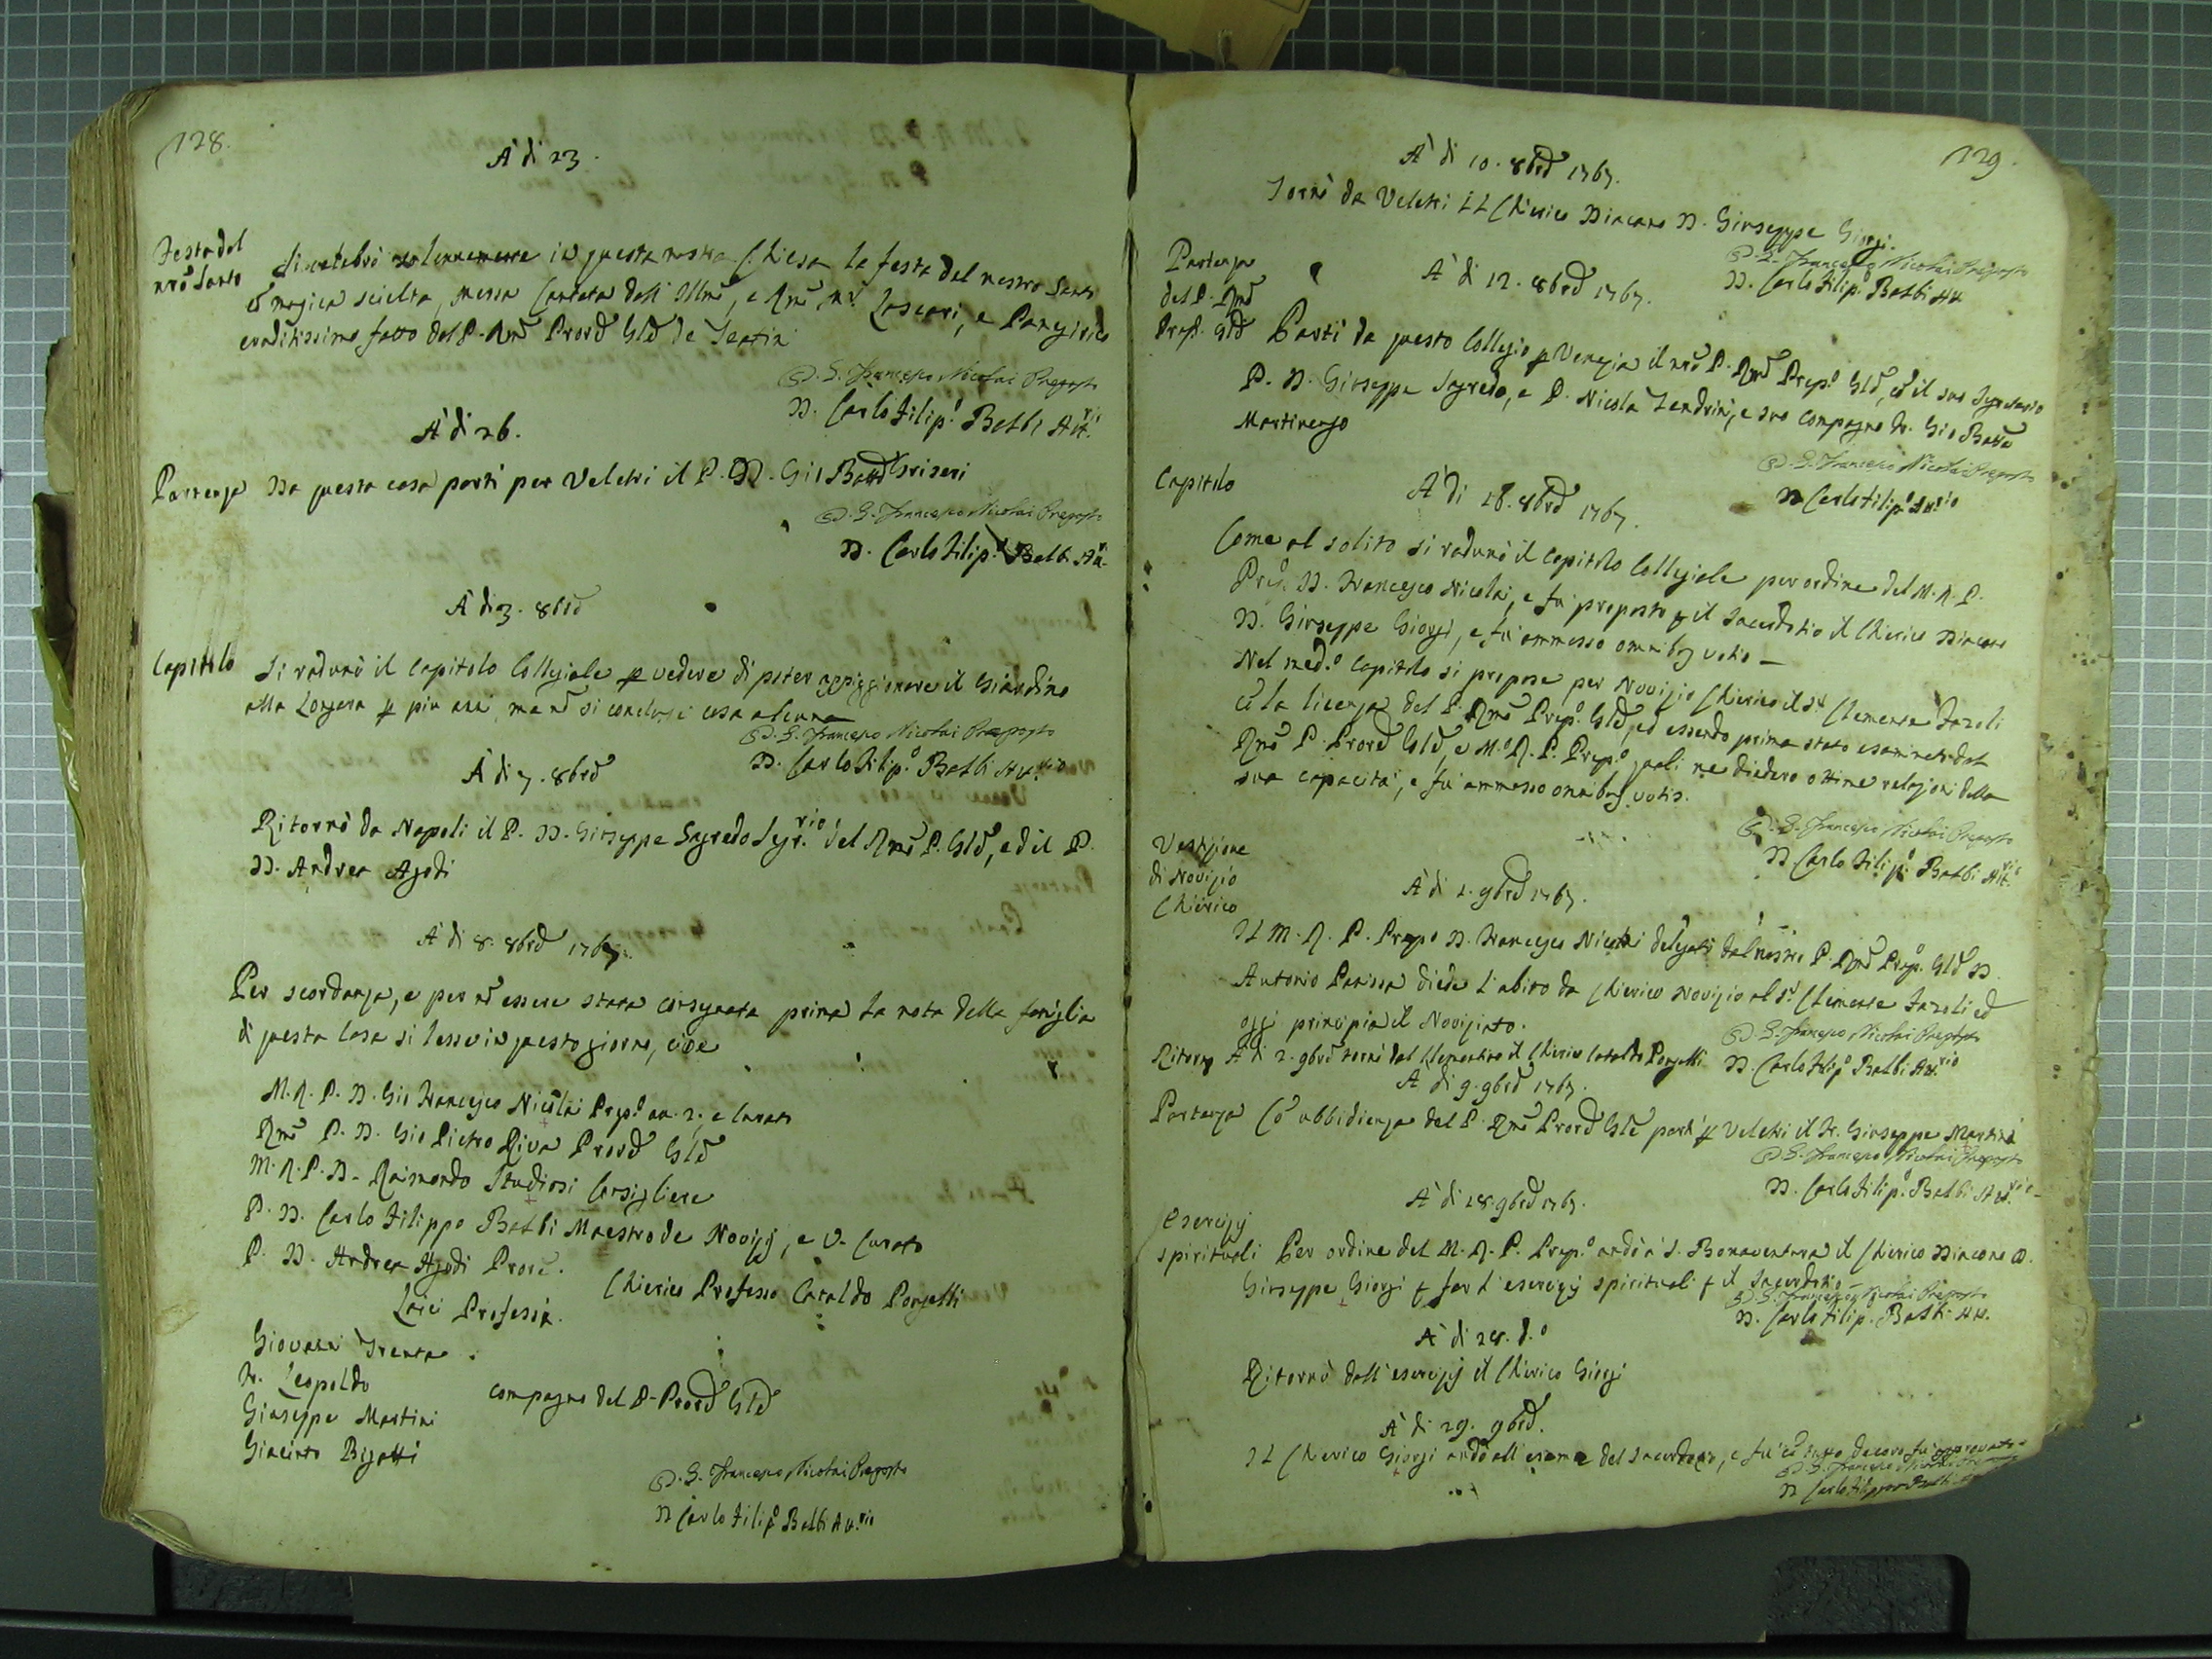 128.
A dì 23.
Festa del
nrō Santo
Si celebrò solennemente in questa nostra Chiesa la festa del nostro Santo
cō musica scielta, messa Cantata dall' Illmō, e Rmō Mr. Lascari, e Panegirico
eruditissimo fatto dal P. Rmō Prorē Glē de Teatini
D. G. Francesco Nicolai Preposto
D. Carlo Filip.o Balbi Att.rio
A dì 26.
Partenza
Da questa casa partì per Veletri il P. D. Gio Battā Griseri
D. G. Francesco Nicolai Preposto
D. Carlo Filip.o Balbi Att.
A dì 3. 8brē
Capitolo
Si radunò il Capitolo Collegiale p vedere di poter appiggionare il Giardino
alla Longara p più anni, ma nō si concluse cosa alcuna
D. G. Francesco Nicolai Preposto
D. Carlo Filip.o Balbi Att.rio
A dì 7. 8brē
Ritornò da Napoli il P. D. Giuseppe Sagredo Segr.rio del Rmō P. Glē, ed il P.
D. Andrea Agodi
A dì 8. 8brē 1767.
Per scordanza, e per nō essere stata consegnata prima la nota della famiglia
di questa Casa si lesse in questo giorno, cioè
M. R. P. D. Gio Francesco Nicolai Prep.o an. 2. e Curato
Rmō P. D. Gio Pietro Riva Prorē Glē
M. R. P. D. Raimondo Studiosi Consigliere
P. D. Carlo Filippo Balbi Maestro de Novizj, e V. Curato
P. D. Andrea Agodi Prorē.
Chierico Professo Cataldo Porzetti
Laici Professi.
Giovani Trenta
Fr. Leopoldo
Giuseppe Martini compagno del P. Prorē Glē
Giacinto Bigatti
D. G. Francesco Nicolai Preposto
D Carlo Filip.o Balbi Att.rio
129.
A dì 10. 8brē 1767.
Tornò da Veletri Il Chierico Diacono D. Giuseppe Giorgi.
D. G. Francesco Nicolai Preposto
D. Carlo Filip.o Balbi Att.
Partenza
del P. Rmō
Prep. Glē
A dì 12. 8brē 1767.
Partì da questo Collegio p Venezia il nrō P. Rmō Prep.o Glē, cō il suo Segretario
P. D. Giuseppe Sagredo, e P. Nicola Zendrini, e suo compagno Fr. Gio Battā
Martinengo
D. G. Francesco Nicolai Preposto
D Carlo Filip.o Att.rio
Capitolo
A dì 18. 8brē 1767.
Come al solito si radunò il Capitolo Collegiale per ordine del M. R. P.
Prep. D. Francesco Nicolai, e fu proposto p il Sacerdotio il Chierico Diacono
D. Giuseppe Giorgi, e fu ammesso omnibus votis —
Nel med.o Capitolo si propose per Novizio Chierico il Sr. Clemente Fazoli
cō la licenza del P. Rmō Prep.o Glē, ed essendo prima stato esaminato dal
Rmō P. Prorē Glē, e M.o R. P. Prep.o quali ne diedero ottime relazioni della
sua capacità, e fu ammesso omnibus votis.
D. G. Francesco Nicolai Preposto
D Carlo Filip.o Balbi Att.rio
Vestizione
di Novizio
Chierico
A dì 1. 9brē 1767.
Il M. R. P. Prepo D. Francesco Nicolai delegato dal nostro P. Rmō Prep.o Glē D.
Antonio Panissa diede l'abito da Chierico novizio al Sr. Clemente Fazoli ed
oggi principia il Noviziato.
D. G. Francesco Nicolai Preposto
Ritorno A dì 2. 9brē tornò dal Clementino il Chierico Cataldo Porzetti
D. Carlo Filip.o Balbi Att.rio
A dì 9. 9brē 1767.
Partenza
Cō ubbidienza del P. Rmō Prorē Glē partì p Veletri il Fr. Giuseppe Martini
D. G. Francesco Nicolai Preposto
D. Carlo Filip.o Balbi Att.rio
A dì 18. 9brē 1767.
Esercizj
spirituali
Per ordine del M. R. P. Prep.o andò a S. Bonaventura il Chierico Diacono D.
Giuseppe Giorgi p far l'esercizj spirituali p il Sacerdotio
D. G. Francesco Nicolai Preposto
D. Carlo Filip.o Balbi Att.
A dì 28. d.o
Ritornò dall'esercizj il Chierico Giorgi
A dì 29. 9brē.
Il Chierico Giorgi andò all'esame del Sacerdozio, e fu cō tutto decoro fu approvato
D. G. Francesco Nicolai
D Carlo Filippo Balbi